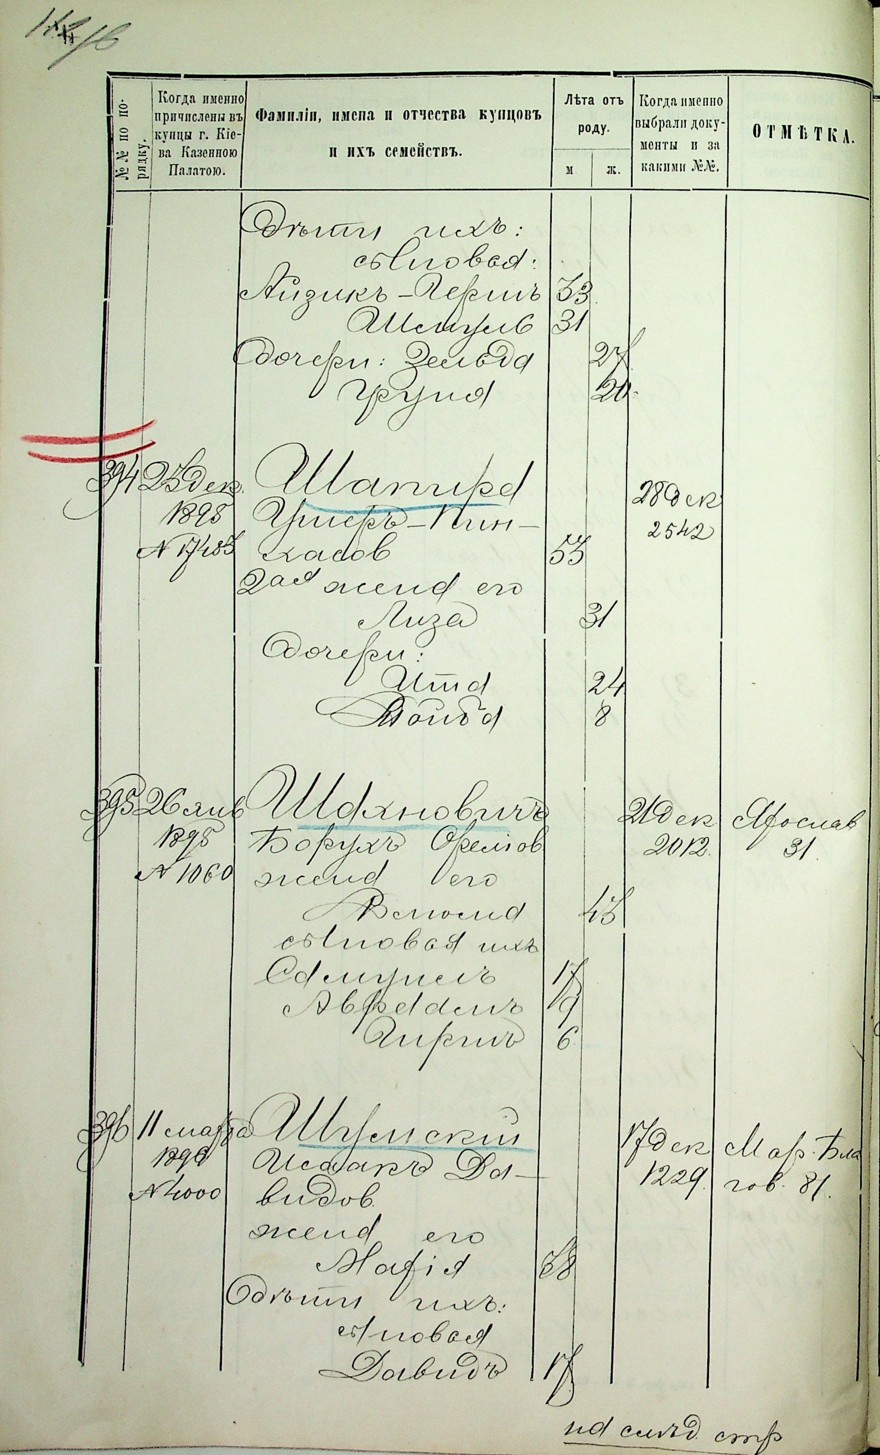 №№ по по-
рядку.
Когда именно
причислены въ
купцы г. Кіе-
ва Казенною
Палатою.
Фамиліи, имена и отчества купцовъ
и ихъ семействъ.
Лѣта отъ
роду.
м
ж.
Когда именно
выбрали доку-
менты и за
какими №№.
ОТМѢТКА.
Дѣти ихъ:
сыновья:
Айзикъ-Гершъ 33
Шмуль 31
Дочери: Зельда 27
Груня 20
394 23 дек. Шапира 28 дек
1898 Ушеръ-Пин- 2542
№ 17483 хасов 53
2ая жена его
Лиза 31
Дочери:
Ита 24
8
395 26 янв Шахновичъ 21 дек Ярослав
1898 Борухъ 2012 31
№ 1060 жена его
43
сыновья ихъ
Самуилъ 17
Авраамъ 9
Гиршъ 6
396 11 марта Шумскій 17 дек Мар. Бла
Исаакъ Да- 1229 гов. 81.
№ 4000 видов
жена его
Марія 38
Дѣти ихъ:
сыновья
Давидъ 17
на слѣд стр